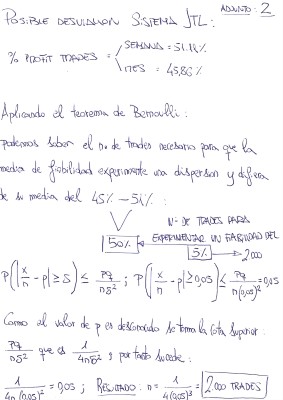 ADJUNTO: 2
POSIBLE DESVIACION SISTEMA JTL:
% PROFIT TRADES = SEMANA = 51.12%
MES = 45,86%
Aplicando el teorema de Bernoulli:
podemos saber el nº de trades necesario para que la
media de fiabilidad experimente una dispersion y difiera
de su media del 45% - 51% :
Nº DE TRADES PARA
50% EXPERIMENTAR UN FIABILIDAD DEL
5% 2000
P(|x/n - p| ≥ δ) ≤ pq/nδ² ; P(|x/n - p| ≥ 0,05) ≤ pq/n(0,05)² = 0,05
Como el valor de p es desconocido se toma la cota superior:
pq/nδ² que es 1/4nδ² y por tanto sucede:
1/4n(0,05)² = 0,05 ; RESULTADO: n = 1/4(0,05)³ = 2000 TRADES